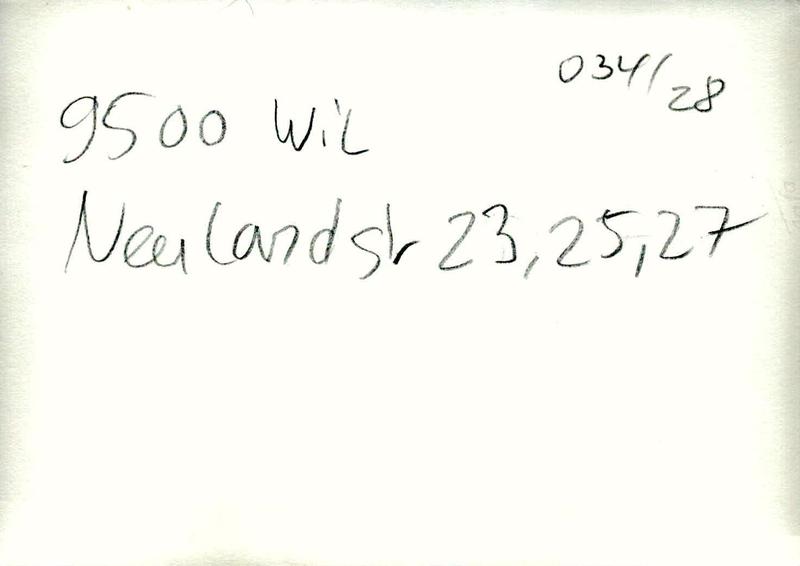 034/28
9500 Wil
Neulandstr 23, 25, 27